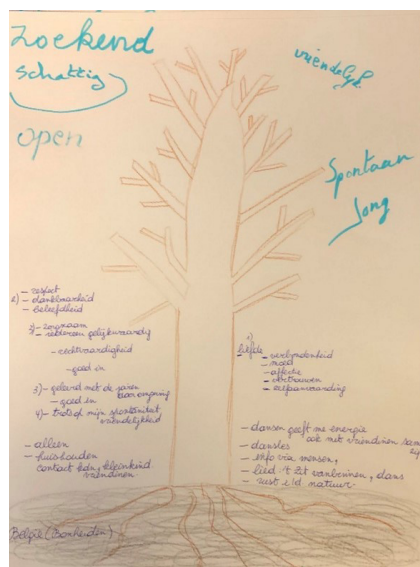 zoekend
schattig
open
vriendelijk
Spontaan
Jong
- respect
- dankbaarheid
- beleefdheid
2) - zorgzaam
- iedereen gelijkwaardig
- rechtvaardigheid
- goed in
3) - geleerd met de jaren
- goed in
4) - trots op mijn spontaniteit
vriendelijkheid
- alleen
- huishouden
contact kdn, kleinkind
vriendinen
België (Bonheiden)
liefde - verbondenheid
- moed
- affectie
- vertrouwen
- zelfaanvaarding
- dansen geeft me energie
ook met vriendinen
- dansles
- info via mensen,
- lied 't zit vanbinnen, dans
- rust i/d natuur.